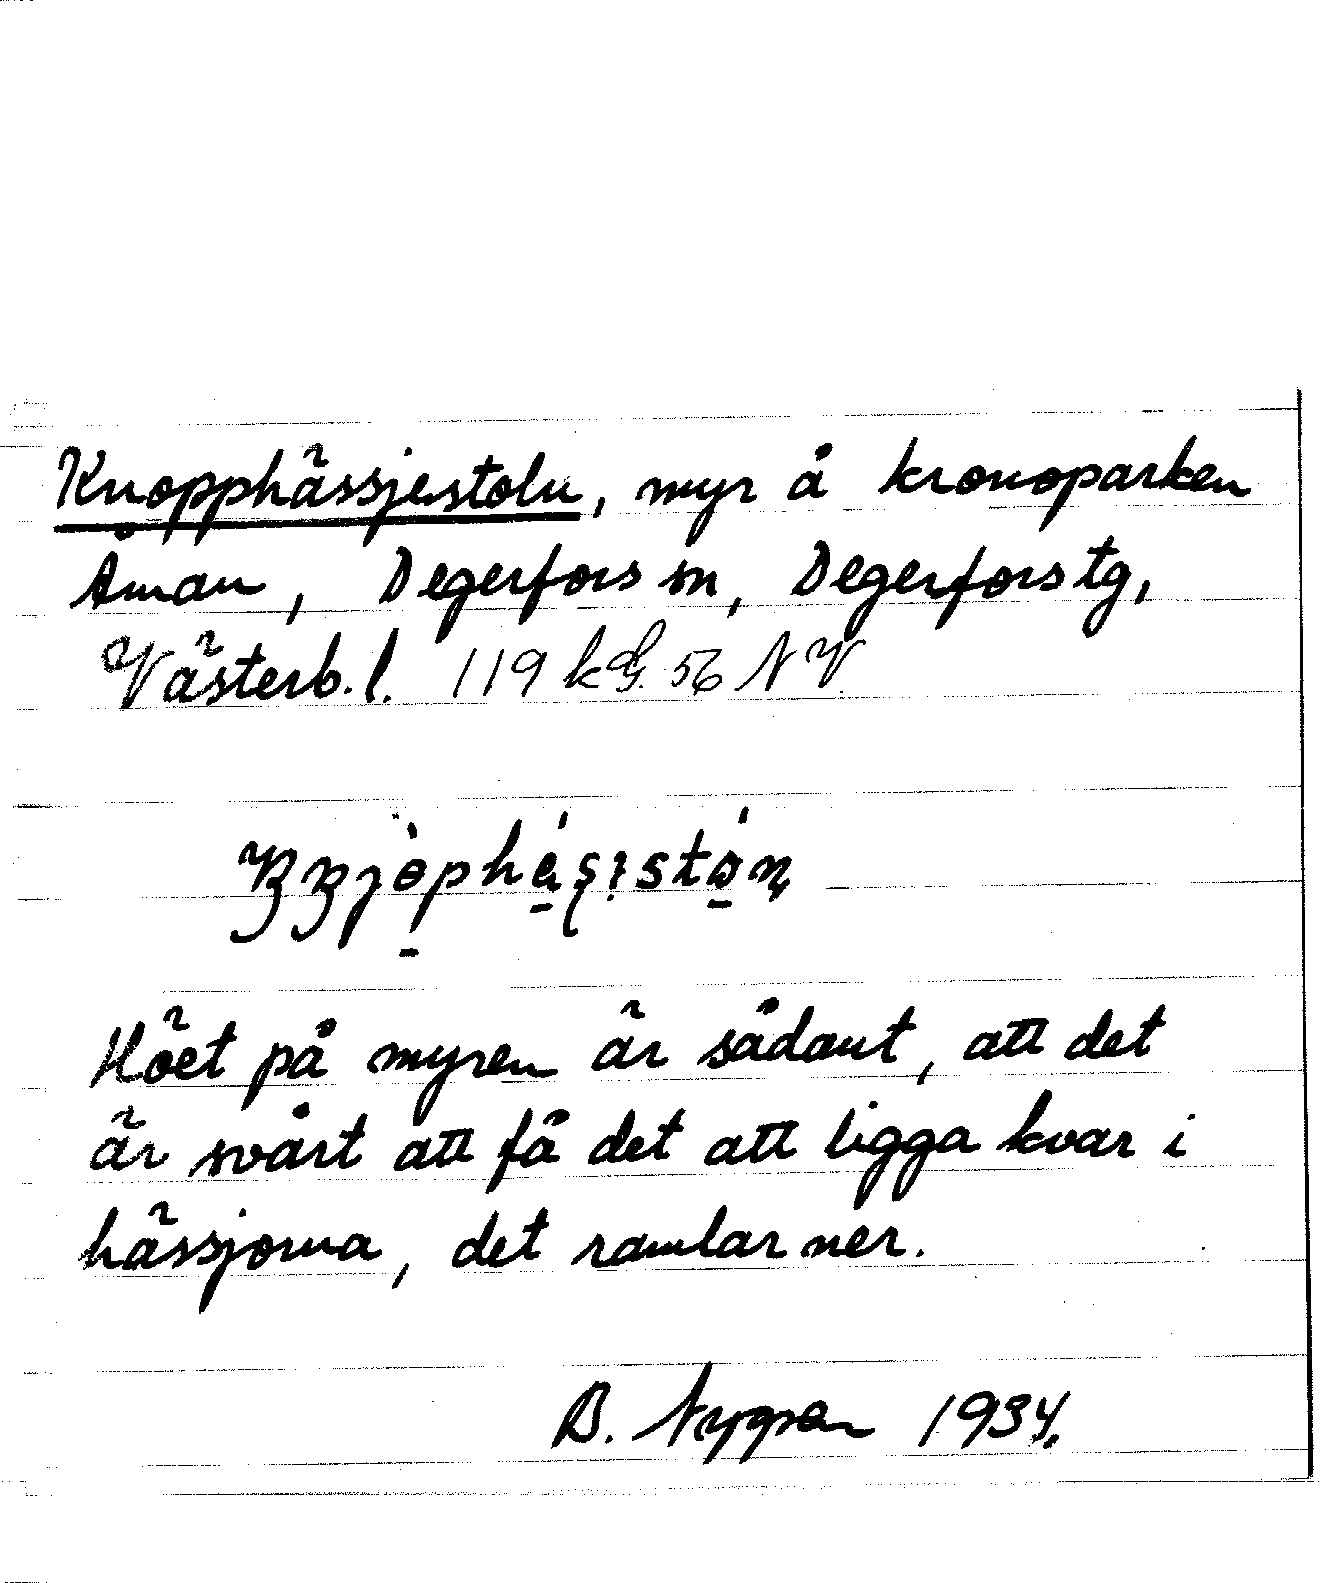 Knopphässjestoln, myr å kronoparken
Åman, Degerfors sn, Degerfors tg,
Västerb. l. 119 kG. 56 NV
Höet på myren är sådant, att det
är svårt att få det att ligga kvar i
hässjorna, det ramlar ner.
B. Nygren 1934.